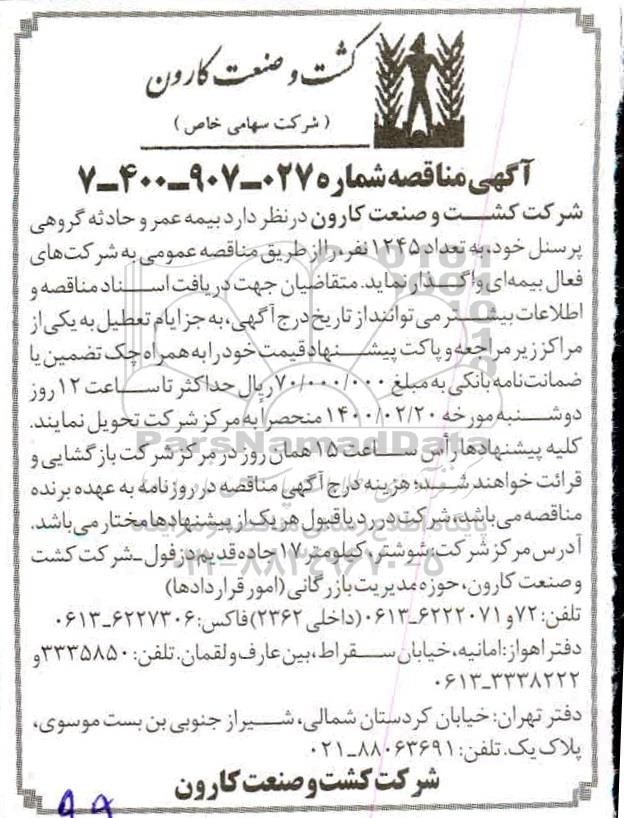 کشت و صنعت کارون
( شرکت سهامی خاص )
آگهی مناقصه شماره ۰۲۷-۹۰۷-۴۰۰-۷
شرکت کشت و صنعت کارون در نظر دارد بیمه عمر و حادثه گروهی
پرسنل خود، به تعداد ۱۲۴۵ نفر، را از طریق مناقصه عمومی به شرکت‌های
فعال بیمه‌ای واگذار نماید. متقاضیان جهت دریافت اسناد مناقصه و
اطلاعات بیشتر می توانند از تاریخ درج آگهی، به جز ایام تعطیل به یکی از
مراکز زیر مراجعه و پاکت پیشنهاد قیمت خود را به همراه چک تضمین یا
ضمانت‌نامه بانکی به مبلغ ۷۰/۰۰۰/۰۰۰ ریال حداکثر تا ساعت ۱۲ روز
دوشنبه مورخه ۱۴۰۰/۰۲/۲۰ منحصراً به مرکز شرکت تحویل نمایند.
کلیه پیشنهادها رأس ساعت ۱۵ همان روز در مرکز شرکت بازگشایی و
قرائت خواهند شد؛ هزینه درج آگهی مناقصه در روزنامه به عهده برنده
مناقصه می‌باشد، شرکت در رد یا قبول هر یک از پیشنهادها مختار می‌باشد.
آدرس مرکز شرکت: شوشتر، کیلومتر ۱۷ جاده قدیم دزفول-شرکت کشت
و صنعت کارون، حوزه مدیریت بازرگانی (امور قراردادها)
تلفن: ۷۲ و ۶۲۲۲۰۷۱-۰۶۱۳ (داخلی ۲۳۶۲) فاکس: ۶۲۲۷۳۰۶-۰۶۱۳
دفتر اهواز: امانیه، خیابان سقراط، بین عارف و لقمان. تلفن: ۳۳۳۵۸۵۰ و
۳۳۳۸۲۲۲-۰۶۱۳
دفتر تهران: خیابان کردستان شمالی، شیراز جنوبی بن بست موسوی،
پلاک یک. تلفن: ۸۸۰۶۳۶۹۱-۰۲۱
شرکت کشت و صنعت کارون
ParsNamadData
۰۲۱-۸۸۳۴۹۶۷۰-۵
۹۹